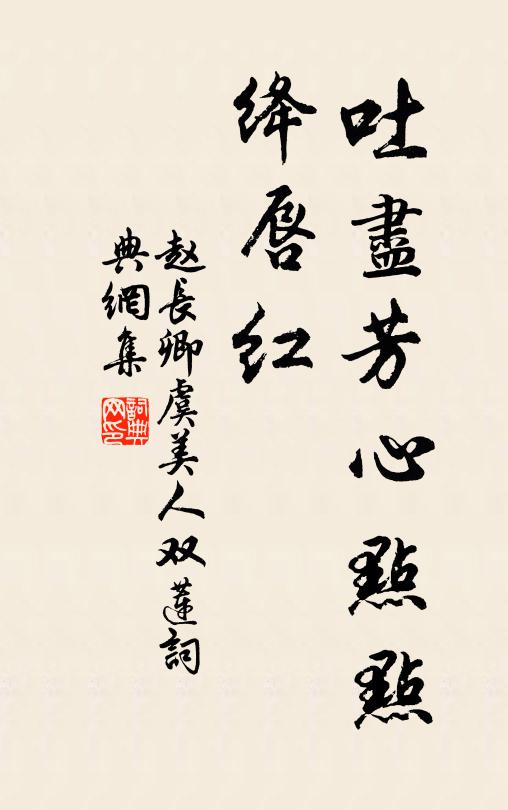 吐盡芳心點點
绛唇红
赵長卿虞美人双蓮詞
典網集
詞典
网印